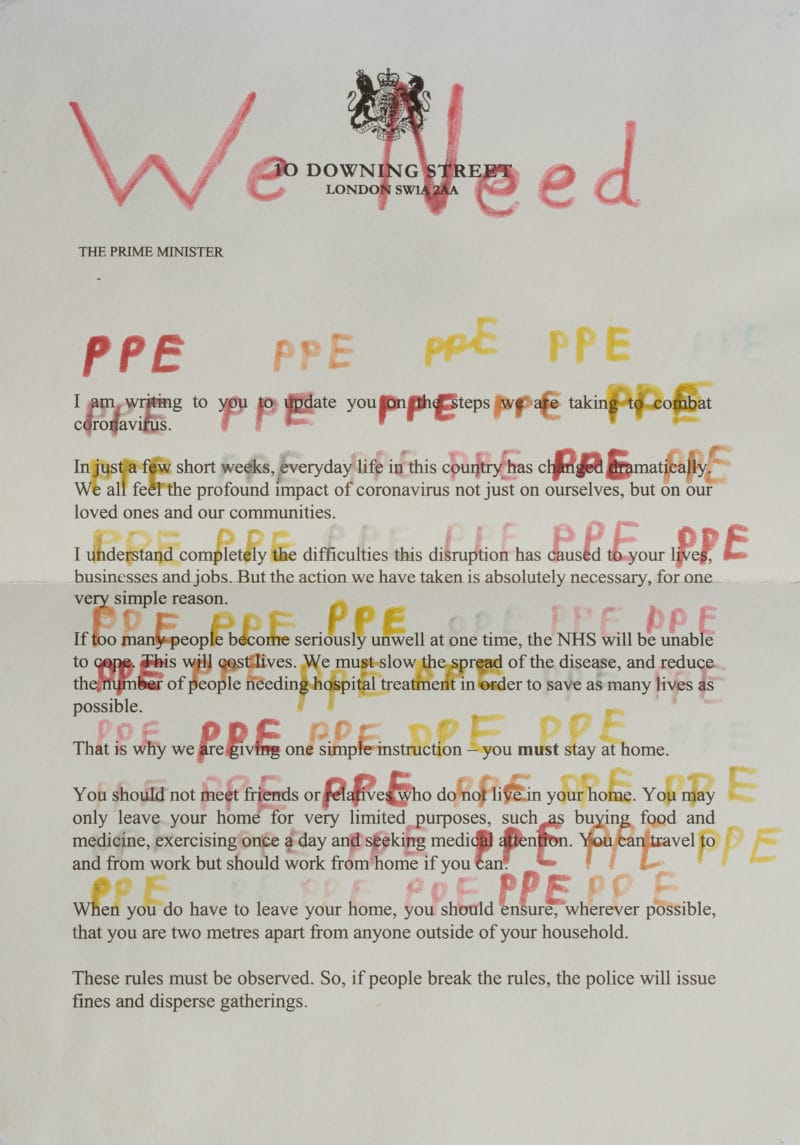 We Need
10 DOWNING STREET
LONDON SW1A 2AA
THE PRIME MINISTER
PPE PPE PPE PPE PPE
PPE PPE PPE PPE PPE
I am writing to you to update you on the steps we are taking to combat
coronavirus.
PPE PPE PPE PPE PPE PPE
In just a few short weeks, everyday life in this country has changed dramatically.
We all feel the profound impact of coronavirus not just on ourselves, but on our
loved ones and our communities.
PPE PPE PPE PPE PPE PPE
I understand completely the difficulties this disruption has caused to your lives,
businesses and jobs. But the action we have taken is absolutely necessary, for one
very simple reason.
PPE PPE PPE PPE PPE PPE
If too many people become seriously unwell at one time, the NHS will be unable
to cope. This will cost lives. We must slow the spread of the disease, and reduce
PPE PPE PPE PPE PPE PPE
the number of people needing hospital treatment in order to save as many lives as
possible.
PPE PPE PPE PPE PPE PPE
That is why we are giving one simple instruction – you must stay at home.
PPE PPE PPE PPE PPE PPE
You should not meet friends or relatives who do not live in your home. You may
only leave your home for very limited purposes, such as buying food and
PPE PPE PPE PPE PPE
medicine, exercising once a day and seeking medical attention. You can travel to
and from work but should work from home if you can.
PPE PPE PPE PPE PPE
When you do have to leave your home, you should ensure, wherever possible,
that you are two metres apart from anyone outside of your household.
These rules must be observed. So, if people break the rules, the police will issue
fines and disperse gatherings.